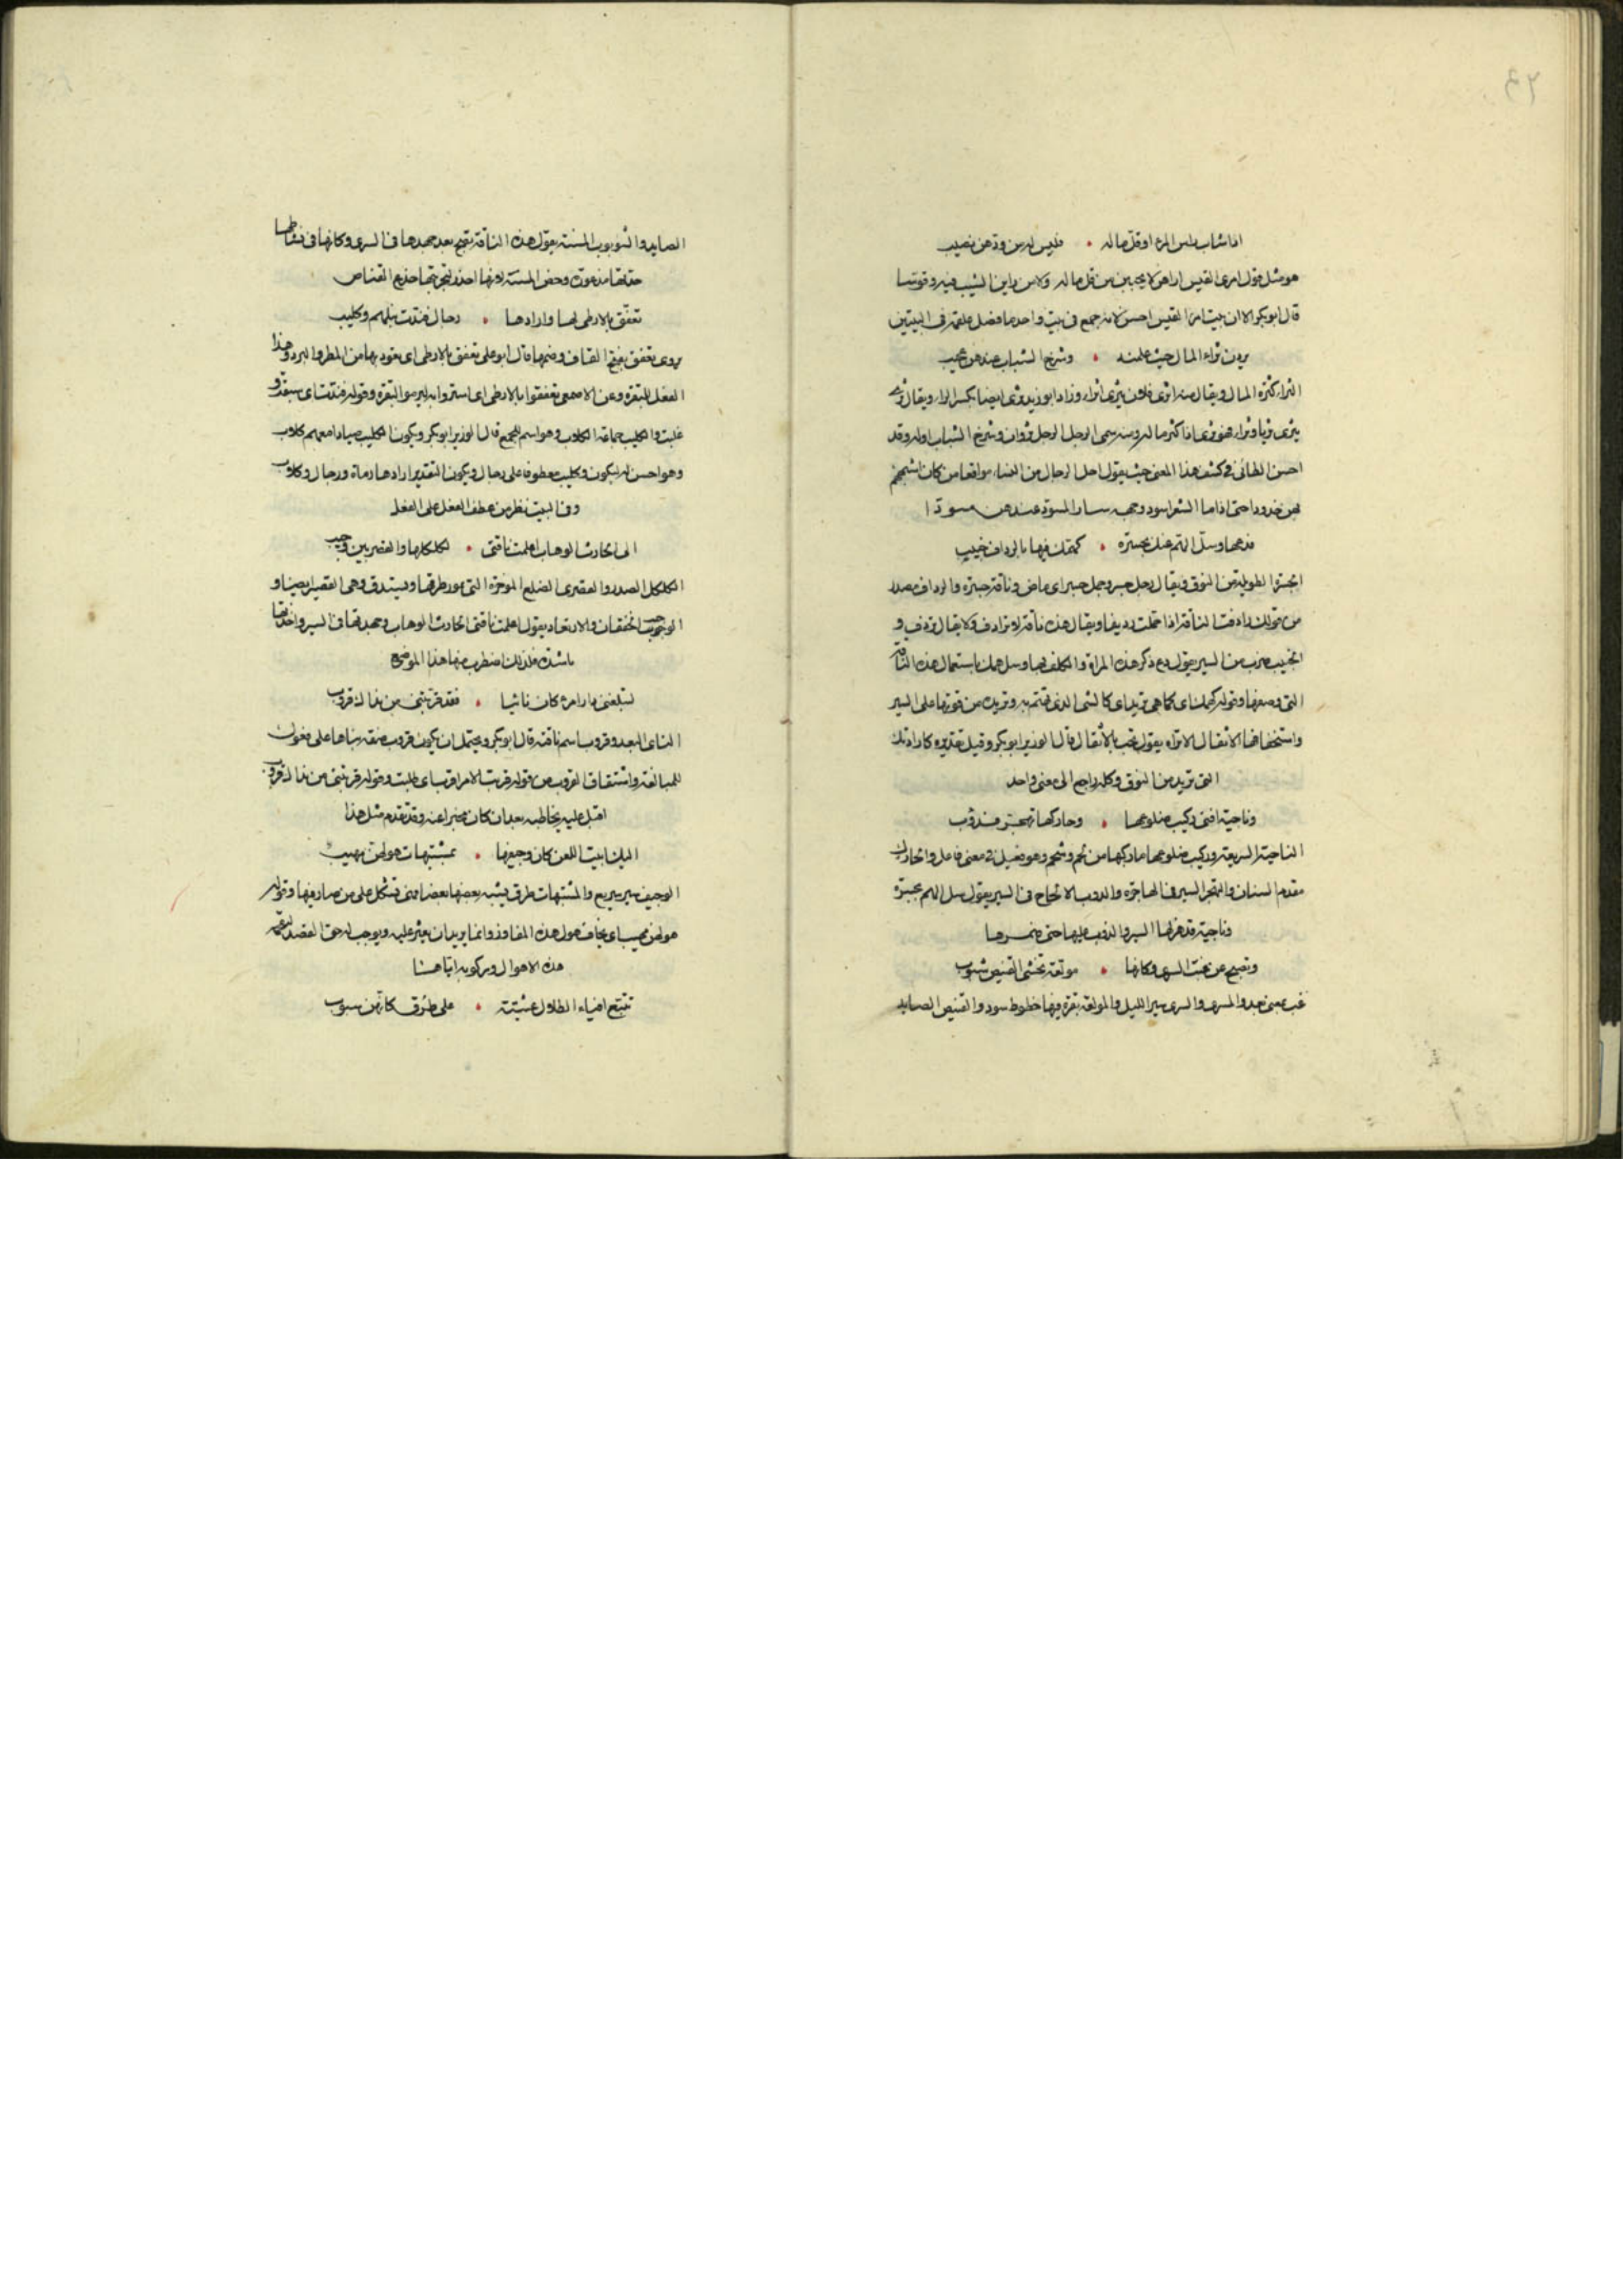 اذا شاب راس المرء او قل ماله • فليس له من ودهن نصيب
هو مثل قول امرى القيس اراهن لا يحببن من قل ماله ولا من راين الشيب فيه وقوسا
قال ابو بكر الا ان بيت امرا القيس احسن لانه جمع فى بيت واحد ما فصل علقمة فى البيتين
يردن ثراء المال حيث علمنه • وشرخ الشباب عندهن عجيب
الثراء كثرة المال ويقال منه اثرى فلان يثرى اثراء وزاد ابو زيد وثرى ايضا بكسر الراء ويقال ثرى
يثرى ثريا وثراء فهو ثرى اذا كثر ماله ومنه سمى الرجل الرجل ثروان وشرخ الشباب اوله وقد
احسن الطائى فى كشف هذا المعنى حيث يقول احل الرجال من النساء مواقعا من كان اشبههم
بهن خدودا حتى اذا ما الشعر اسود وجهه سار المسود عندهن مسودا
فدعها وسل الهم عنك بجسرة • كهمك فيها بالرداف خبيب
الجسرة الطويلة من النوق ويقال رجل جسر وجمل جسر اى ماض وناقة جسرة والرداف مصدر
من قولك رادفت الناقة اذا حملت رديفا ويقال هذه ناقة لا ترادف ولا يقال تردف و
الخبيب ضرب من السير يقول دع ذكر هذه المراة والكلف بها وسل همك باستعمال هذه الناقة
التى وصفها وقوله كهمك اى كما هى تريد اى كالشى الذى تهتم به وتريده من قوتها على السير
واستخفافها الاثقال الا تراه يقول تخب بالأثقال قال الوزير ابو بكر وقيل تقديره كارادتك
التى تريد من النوق وكله راجع الى معنى واحد
وناجية افنى ركيب ضلوعها • وحاركها تهجر فدؤب
الناجية السريعة وركيب ضلوعها ما ركبها من لحم وشحم وهو فعيل فى معنى فاعل والحارك
مقدم السنان والتهجر السير فى الهاجرة والدوب الالحاح فى السير يقول سل الهم بجسرة
وناجية قد هزلها السير والدوب عليها حتى ضمرها
وتصبح عن غب السرى وكانها • مولعة تخشى القنيص شبوب
غب بمعنى بعد والسرى والسرى سير الليل والمولعة بقرة فيها خطوط سود والقنيص الصايد
الصايد والشوبوب المسنة يقول هذه الناقة تصبح بعد جهدها فى السرى وكانها فى نشاطها
وحض المسنة لانها احذر لتجربتها خدع القناص
تعفق بالارطى لها وارادها • رجال فبذت نبلهم وكليب
يروى تعفق بفتح القاف وضمها قال ابو على تعفق بالارطى اى يعوذ بها من المطر والبرد وهذا
الفعل للبقرة وعن الاصمعى تعفقوا بالارطى اى استتروا به ليرموا البقرة وقوله فبذت اى سبقت و
غلبت والكليب جماعة الكلاب وهو اسم للجمع قال الوزير ابو بكر ويكون الكليب صيادا معهم كلاب
وهو احسن له ليكون وكليب معطوفا على رجال ويكون التقدير ارادها رماة ورجال وكلاب
وفى البيت نظر من عطف الفعل على الفعل
الى الحارث الوهاب اعلمت ناقتى • لكلكلها والقصريين وجيب
الكلكل الصدر والقصرى الضلع الموخرة التى يدور طرفها ويستدق وهى القصيرى ايضا و
الوجيب الخفقان والارتعاد يقول اعلمت ناقتى الحارث الوهاب وجهدتها فى السير واخذتها
باشده فلذلك اضطرب منها هذا الموضع
لتبلغنى دار امرء كان نائيا • فقد قربتنى من نداك قروب
الناى البعد وقروب اسم ناقته قال ابو بكر ويحتمل ان يكون قروب صفة بناها على فعول
للمبالغة واشتقاق القروب من قوله قربت الامر اقرب اى طلبت وقوله قربتنى من نداك قروب
اقبل عليه يخاطبه بعد ان كان مخبرا عنه وقد تقدم مثل هذا
اليك ابيت اللعن كان وجيفها • بمشتبهات هولهن مهيب
الوجيف سير سريع والمشتبهات طرق يشبه بعضها بعضا فهى تشكل على من صار فيها وقوله
هولهن مهيب اى يخاف هول هذه المفاوز وانما يريد ان يعثر عليه ويوجب له حق القصد
هذه الاهوال وركوبه اياها
تتبع افياء الظلال عشية • على طرق كانهن سبوب